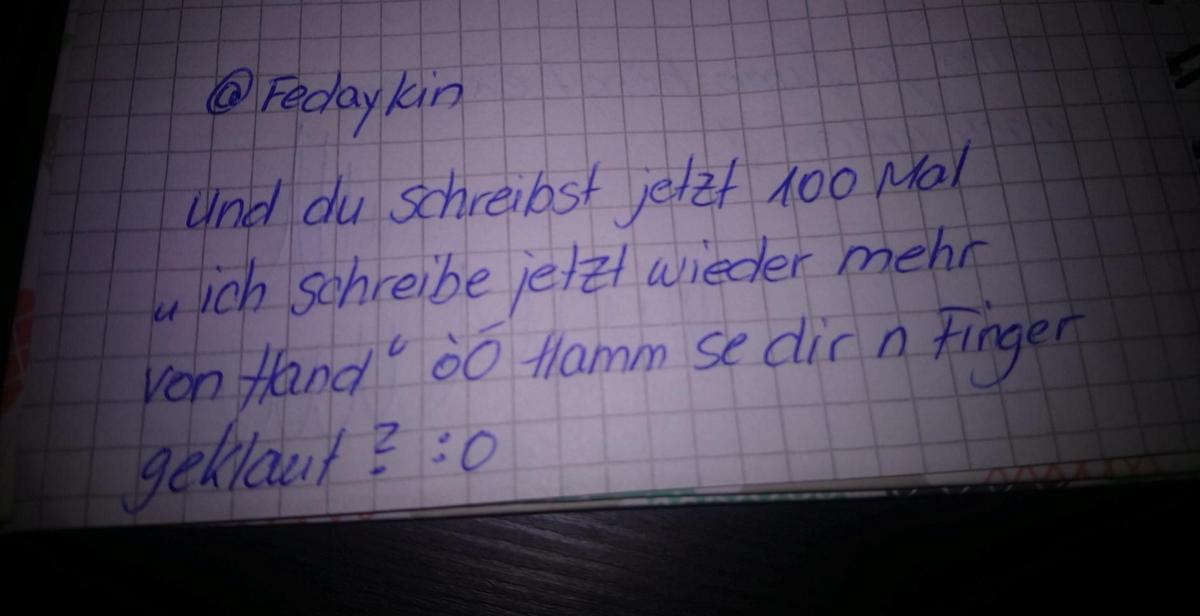 @Fedaykin
und du schreibst jetzt 100 Mal
„ich schreibe jetzt wieder mehr
von Hand“ òÓ Hamm se dir n Finger
geklaut? :O